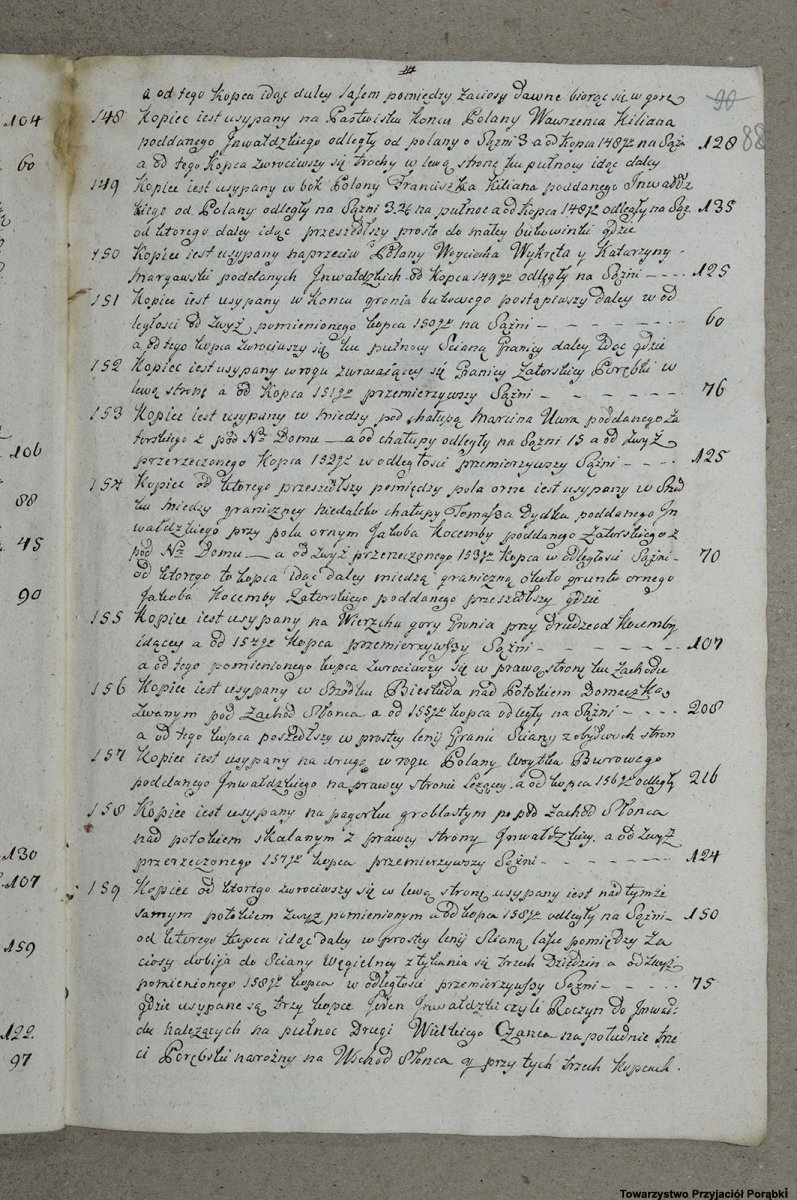 104
60
106
88
45
90
130
107
159
122.
97
90
88
a od tego kopca idąc daley lasem pomiędzy zaciosy dawne biorąc się w gorę
148 Kopiec iest usypany na Pastwisku koncu Polany Wawrzenca Kiliana
poddanego Jnwałdzkiego odległy od polany o Sążni 3 a od kopca 147go na Sążni 128
a od tego kopca zwrociwszy się trochy w lewą stronę ku pułnocy idąc daley
149 Kopiec iest usypany w bok Polany Franciszka Kiliana poddanego Jnwałdz
kiego od Polany odległy na Sążni 3.2/4 na pułnoc a od kopca 148go odległy na Sąż. 135
od ktorego daley idąc przeszedłszy prosto do małey bukowinki gdzie
150 Kopiec iest usypany naprzeciw Polany Woyciecha Wykręta y Katarzyny
Margawski poddanych Jnwałdzkich od kopca 149go odległy na Sążni - - - - 125
151 Kopiec iest usypany w koncu gronia bukowego postąpiwszy daley w od
ległosci od zwyż pomienionego kopca 150go na Sążni - - - - - - 60
a od tego kopca zwrociwszy się ku pułnocy Scianą Granicy daley idąc gdzie
152 Kopiec iest usypany w rogu zwracaiącey się Granicy Zatorskiey Porębki w
lewą stronę a od Kopca 151go przemierzywszy Sążni - - - - - - 76
153 Kopiec iest usypany w miedzy pod chałupą Marcina poddanego Za
torskiego z pod Nro Domu — a od chałupy odległy na Sążni 15 a od zwyż
przerzeczonego Kopca 152go w odległosci przemierzywszy Sążni - - - - 125
154 Kopiec od ktorego przeszedłszy pomiędzy pola orne iest usypany w Srod
ku miedzy graniczney niedaleko chałupy Tomasza Dydka poddanego Jn
wałdzkiego przy polu ornym Jakoba Kocemby poddanego Zatorskiego z
pod Nro Domu — a od zwyż przerzeczonego 153go Kopca w odległosci Sążni - 70
od ktorego to kopca idąc daley miedzą graniczną około gruntu ornego
Jakuba Kocemby Zatorskiego poddanego przeszedłszy gdzie
155 Kopiec iest usypany na Wierzchu gory Gronia przy drudze od Kocemby
idącey a od 154go kopca przemierzywszy Sążni - - - - - - - 107
a od tego pomienionego kopca zwrociwszy się w prawą stronę ku zachodu
156 Kopiec iest usypany w Srodku Biesiada nad Potokiem Domaczką
zwanym pod Zachod Słonca a od 155go kopca odległy na Sążni - - - - 208
a od tego kopca poszedłszy w prostey lenij Granic Sciany z obydwuch stron
157 Kopiec iest usypany na drugą w rogu Polany Woytka Burowego
poddanego Jnwałdzkiego na prawey stronie Leżącey, a od kopca 156go odległy 216
158 Kopiec iest usypany na pagorku groblastym po pod Zachod Słonca
nad potokiem skalanym z prawey strony Jnwałdzkiey, a od zwyż
przerzeczonego 157go kopca przemierzywszy Sążni - - - - - - - 124
159 Kopiec od ktorego zwrociwszy się w lewą stronę usypany iest nad tymże
samym potokiem zwyż pomienionym a od kopca 158go odległy na Sążni - 150
od ktorego kopca idąc daley w prostey lenij Scianą lasu pomiędzy Za
ciosy dobija do Sciany Węgielney z tykania się trzech Dziedzin a od zwyż
pomienionego 158go kopca w odległosci przemierzywszy Sążni - - - - - 75
gdzie usypane są trzy kopce Jeden Jnwałdzki czyli Roczyn do Jnwał-
du należących na pułnoc Drugi Wielkiego Czanca na południe trze
ci Porębski narożny na Wschod Słonca y przy tych trzech Kopcach.
Towarzystwo Przyjaciół Porąbki